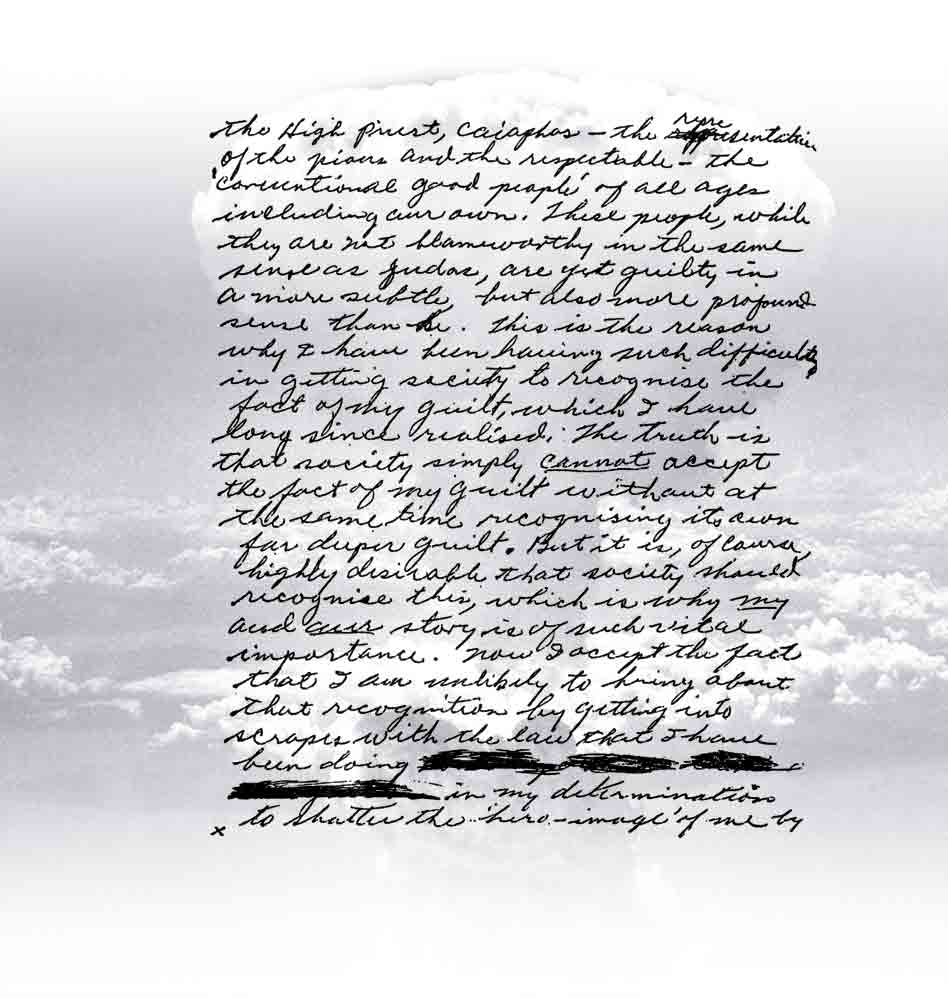 the High Priest, Caiaphas – the representative
of the pious and the respectable – the
'conventional good people' of all ages
including our own. These people, while
they are not blameworthy in the same
sense as Judas, are yet guilty in
a more subtle, but also more profound
sense than he. This is the reason
why I have been having such difficulty
in getting society to recognise the
fact of my guilt, which I have
long since realised. The truth is
that society simply cannot accept
the fact of my guilt without at
the same time recognising its own
far deeper guilt. But it is, of course,
highly desirable that society should
recognise this, which is why my
and our story is of such vital
importance. Now I accept the fact
that I am unlikely to bring about
that recognition by getting into
scrapes with the law that I have
been doing
in my determination
x to shatter the 'hero-image' of me by